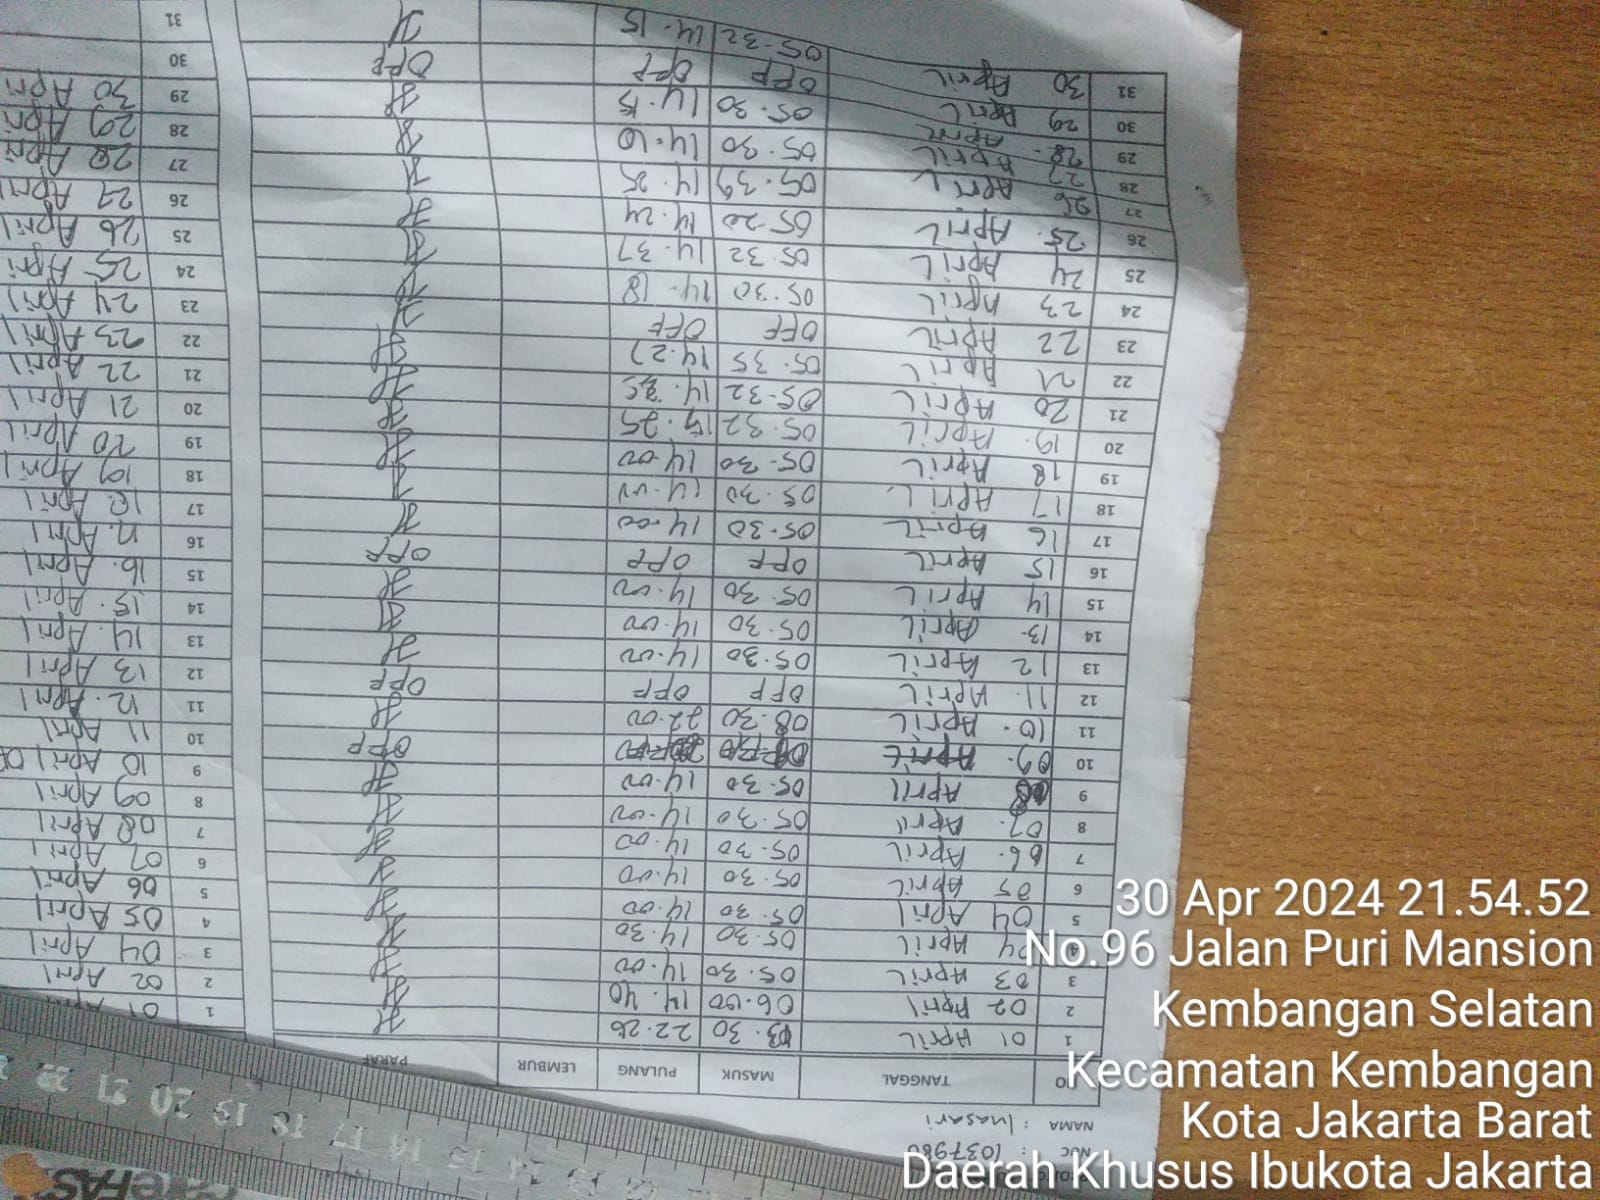 NUC : 1037980
NAMA : Inasari
NO TANGGAL MASUK PULANG LEMBUR PARAF
1 01 April 03.30 22.26
2 02 April 06.00 14.40
3 03 April 05.30 14.00
04 April 05.30 14.30
5 04 April 05.30 14.00
6 05 April 05.30 14.00
7 06. April 05.30 14.00
8 07. April 05.30 14.00
9 08 April 05.30 14.00
10 09. April OFF
11 10. April 08.30 22.00
12 11. April OFF OFF OFF
13 12 April 05.30 14.00
14 13. April 05.30 14.00
15 14 April 05.30 14.00
16 15 April OFF OFF OFF
17 16 April 05.30 14.00
18 17 April 05.30 14.00
19 18 April 05.30 14.00
20 19. April 05.32 25
21 20 April 05.32 14.
22 21 April 05.35 14.27
23 22 April OFF OFF
24 23 April 05.30 14.18
25 24 April 05.32 14.37
26 25. April 05.20 14.24
27 26 April 05.39 14.25
28 27 April 05.30 14.10
29 28. April 05.30 14.15
30 29 April OFF OFF OFF
31 30 April 05.32 14.15
1 01 April
2 02 April
3 04 April
4 05 April
5 06 April
6 07 April
7 08 April
8 09 April
9 10 April
10 11 April
11 12. April
12 13 April
13 14. April
14 15. April
15 16. April
16 17. April
17 18 April
18 19 April
19 20 April
20 21 April
21 22 April
22 23 April
23 24 April
24 25 April
25 26 April
26 27 April
27 28 April
28 29 April
29 30 April
30
31
12 13 14 15 16 17 18 19 20 21 22 23
30 Apr 2024 21.54.52
No.96 Jalan Puri Mansion
Kembangan Selatan
Kecamatan Kembangan
Kota Jakarta Barat
Daerah Khusus Ibukota Jakarta